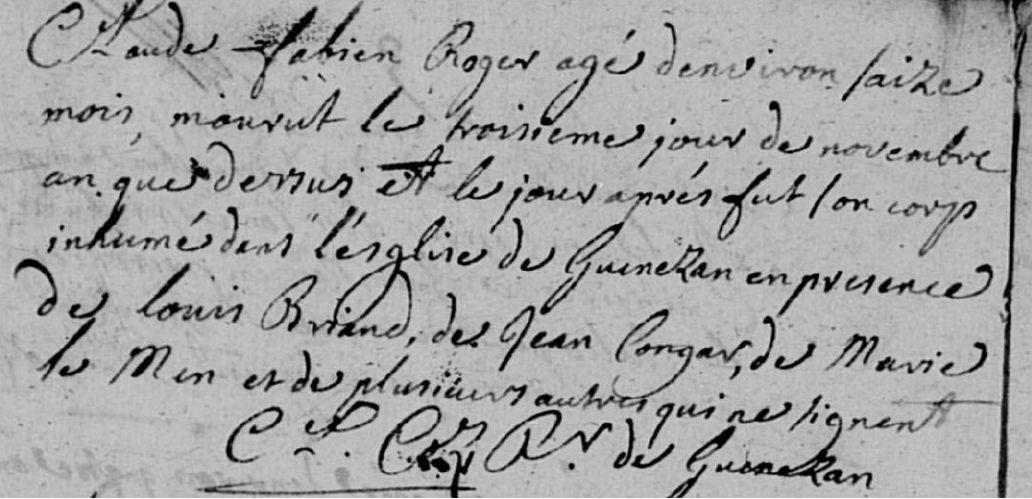 Claude fabien Roger agé denviron saize
mois, mourut le troisieme jour de novembre
an que dessus et le jour aprés fut son corp
inhumé dens l'ésglise de Guenezan en presence
de louis Briand, de Jean Congar, de Marie
le Men et de plusieurs autres qui ne signent
de Guenezan